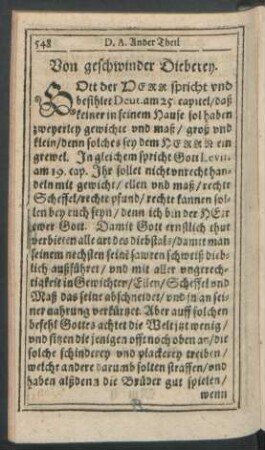 548 D. A. Ander Theil
Von geschwinder Dieberey.
GOtt der HERR spricht vnd
befihlet Deut. am 25. capitel/daß
keiner in seinem Hause sol haben
zweyerley gewichte vnd maß/ groß vnd
klein/denn solches sey dem HERRN ein
grewel. In gleichem spricht Gott Levit.
am 19. cap. Ihr sollet nicht vnrecht han-
deln mit gewicht/ ellen vnd maß/rechte
Scheffel/rechte pfund/rechte kannen sol-
len bey euch seyn/ denn ich bin der HErr
ewer Gott. Damit Gott ernstlich thut
verbieten alle art des diebstals/damit man
seinem nechsten seine sawren schweiß dieb-
lich außführet/ vnd mit aller vngerech-
tigkeit in Gewichten/Ellen/Scheffel vnd
Maß das seine abschneidet/ vnd jn an sei-
ner nahrung verkürtzet. Aber auff solchen
befehl Gottes achtet die Welt jtzt wenig/
vnd sitzen die jenigen offt noch oben an/die
solche schinderey vnd plackerey treiben/
welche andere darumb solten straffen/vnd
haben alßdenn die Brüder gut spielen/
wenn